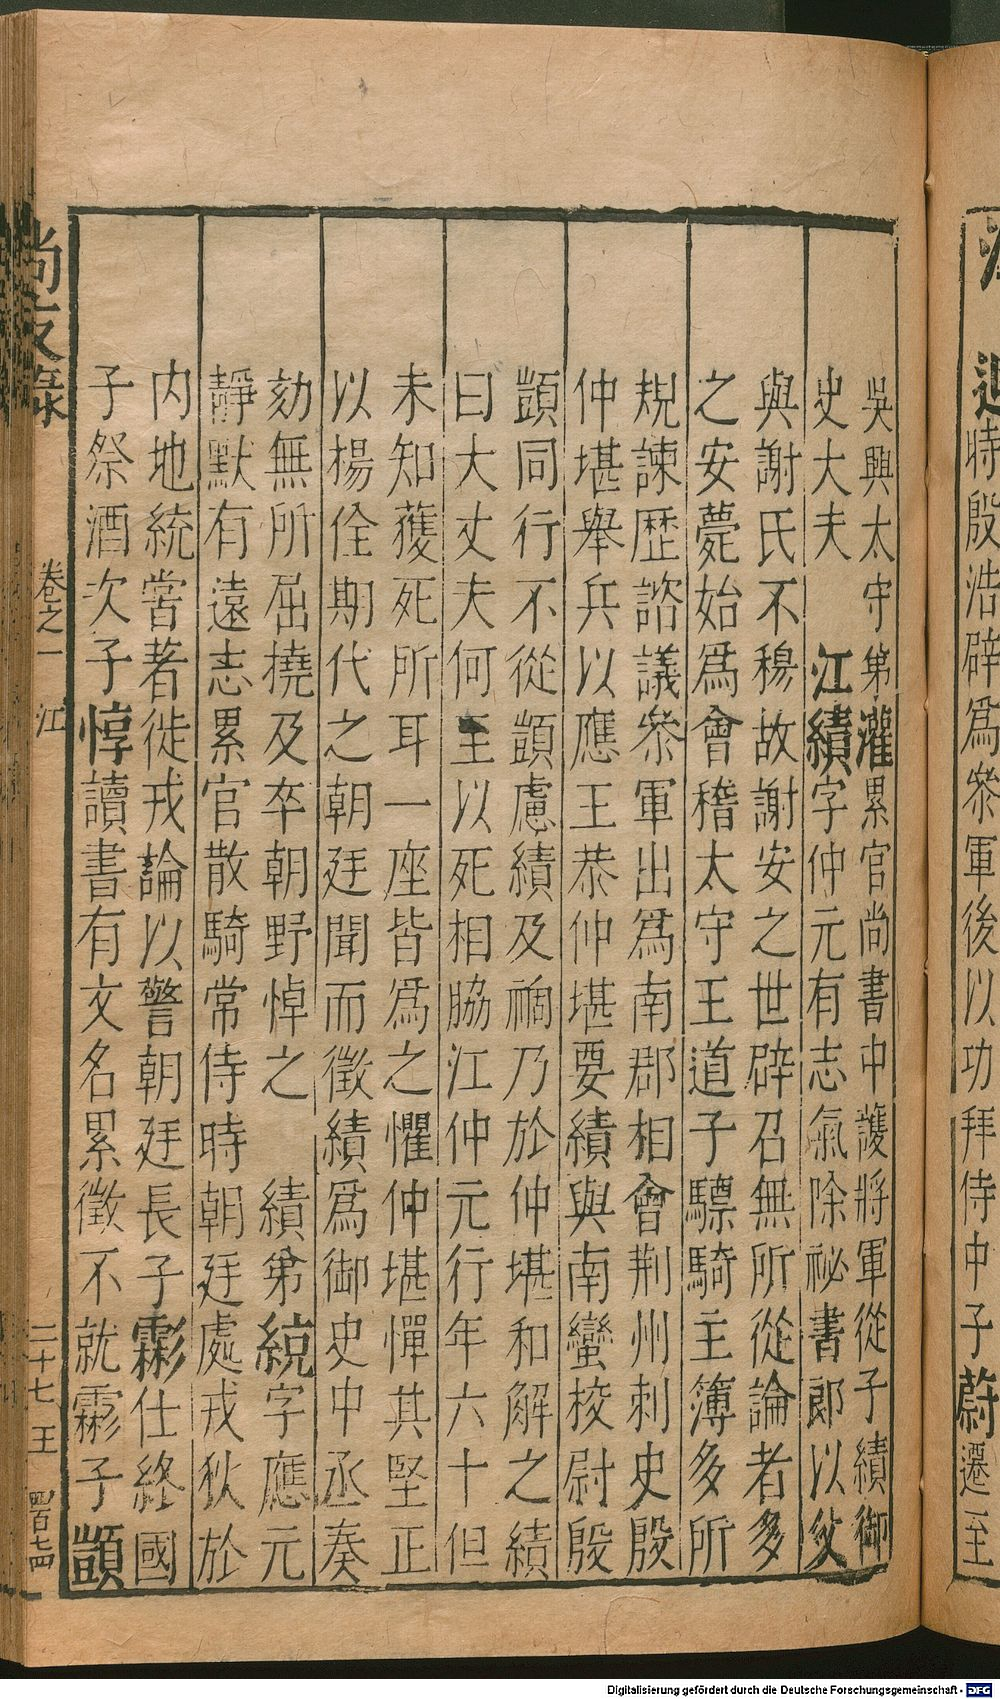 吳興太守弟灌累官尚書中護將軍從子績御
史大夫　江績字仲元有志氣除祕書郎以父
與謝氏不穆故謝安之世辟召無所從論者多
之安薨始爲會稽太守王道子驃騎主簿多所
規諫歷諮議叅軍出爲南郡相會荆州刺史殷
仲堪舉兵以應王恭仲堪要績與南蠻校尉殷
顗同行不從顗慮績及禍乃於仲堪和解之績
曰大丈夫何至以死相脇江仲元行年六十但
未知獲死所耳一座皆爲之懼仲堪憚其堅正
以楊佺期代之朝廷聞而徵績爲御史中丞奏
劾無所屈撓及卒朝野悼之　績弟統字應元
靜默有遠志累官散騎常侍時朝廷處戎狄於
内地統嘗著徙戎論以警朝廷長子虨仕終國
子祭酒次子惇讀書有文名累徵不就虨子顗
尚友錄　卷之一　江　二十七　王　四百七十四
時殷浩辟爲叅軍後以功拜侍中子蔚遷至
Digitalisierung gefördert durch die Deutsche Forschungsgemeinschaft - DFG